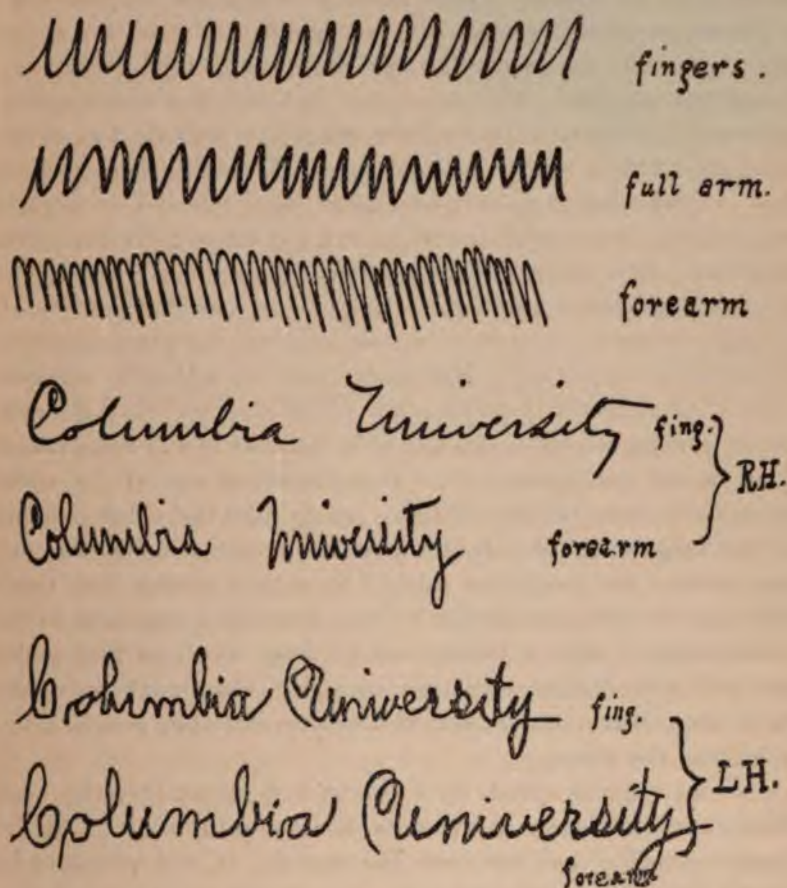 fingers.
full arm.
forearm
Columbia University fing.
RH.
Columbia University forearm
Columbia University fing.
LH.
Columbia University
forearm